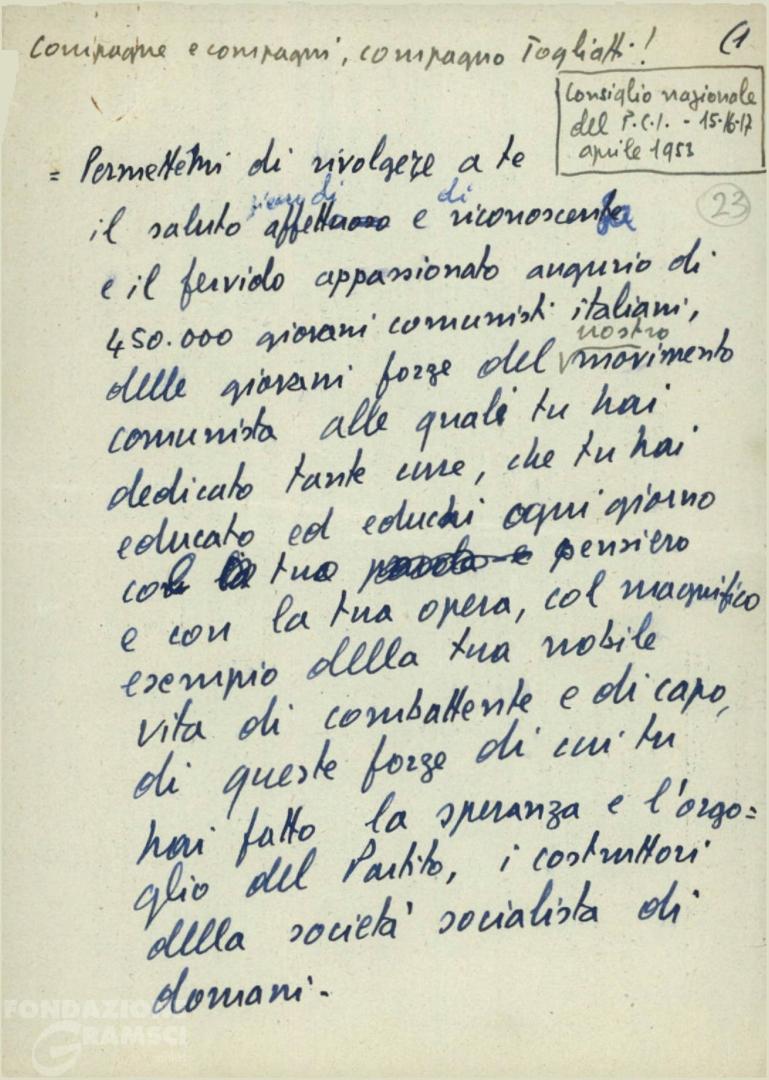 Compagne e compagni, compagno Togliatti!
(1
Consiglio nazionale
del P.C.I. - 15-16-17
aprile 1953
23
= Permettetmi di rivolgere a te
di
il saluto affettuoso e riconoscenza
e il fervido appassionato augurio di
450.000 giovani comunisti italiani,
nostro
delle giovani forze del movimento
comunista alle quali tu hai
dedicato tante cure, che tu hai
educato ed educhi ogni giorno
col tuo pensiero
e con la tua opera, col magnifico
esempio della tua nobile
vita di combattente e di capo,
di queste forze di cui tu
hai fatto la speranza e l'orgo=
glio del Partito, i costruttori
della società socialista di
domani.-
FONDAZIONE
GRAMSCI